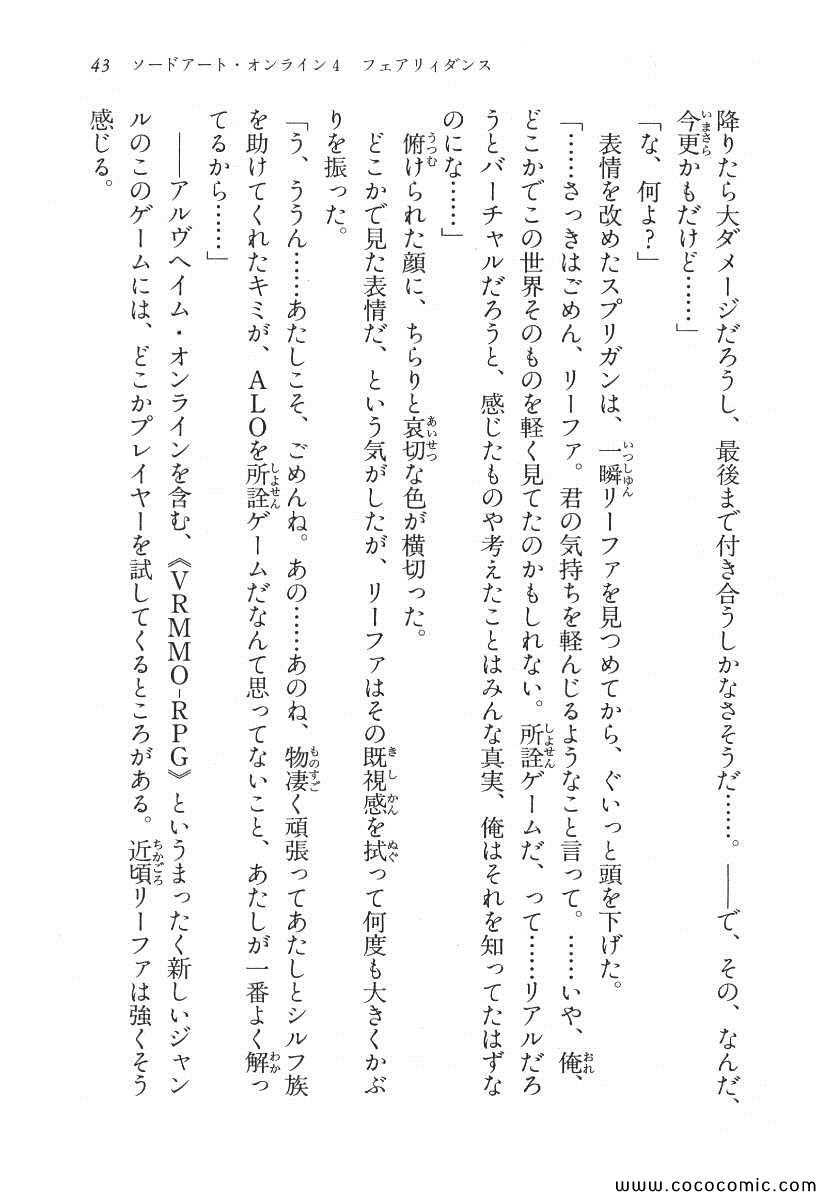 43　ソードアート・オンライン4　フェアリィダンス
降りたら大ダメージだろうし、最後まで付き合うしかなさそうだ……。――で、その、なんだ、
今更かもだけど……」
「な、何よ?」
　表情を改めたスプリガンは、一瞬リーファを見つめてから、ぐいっと頭を下げた。
「……さっきはごめん、リーファ。君の気持ちを軽んじるようなこと言って。……いや、俺、
どこかでこの世界そのものを軽く見てたのかもしれない。所詮ゲームだ、って……リアルだろ
うとバーチャルだろうと、感じたものや考えたことはみんな真実、俺はそれを知ってたはずな
のにな……」
　俯けられた顔に、ちらりと哀切な色が横切った。
　どこかで見た表情だ、という気がしたが、リーファはその既視感を拭って何度も大きくかぶ
りを振った。
「う、ううん……あたしこそ、ごめんね。あの……あのね、物凄く頑張ってあたしとシルフ族
を助けてくれたキミが、ALOを所詮ゲームだなんて思ってないこと、あたしが一番よく解っ
てるから……」
　――アルヴヘイム・オンラインを含む、《VRMMO-RPG》というまったく新しいジャン
ルのこのゲームには、どこかプレイヤーを試してくるところがある。近頃リーファは強くそう
感じる。
www.cococomic.com